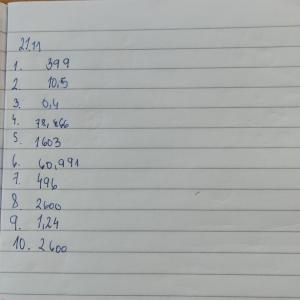 21.11
1. 399
2. 10,5
3. 0,4
4. 78,866
5. 1603
6. 60,991
7. 496
8 2600
9. 1,24
10. 2600